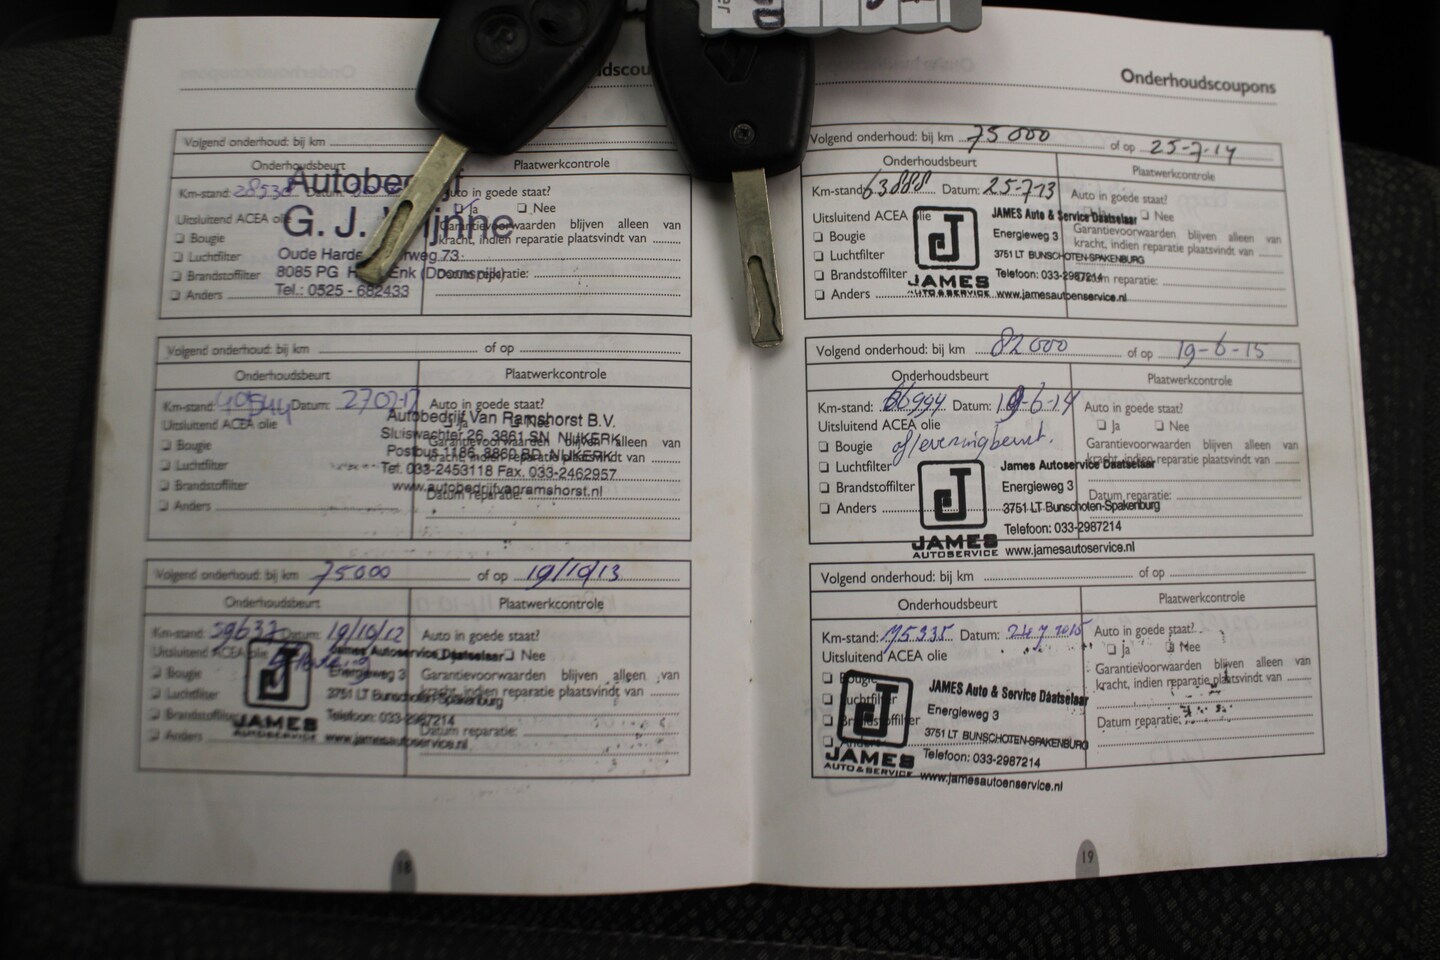 Onderhoudscoupons
Volgend onderhoud: bij km
Onderhoudsbeurt
Plaatwerkcontrole
Km-stand: 28538 Datum:
Auto in goede staat?
Uitsluitend ACEA olie
Ja Nee
Bougie
Garantievoorwaarden blijven alleen van
kracht, indien reparatie plaatsvindt van
Luchtfilter
Brandstoffilter
Datum reparatie:
Anders
Autobedrijf
G. J.
Oude
8085 PG
Tel.: 0525 - 682433
Volgend onderhoud: bij km of op
Onderhoudsbeurt
Plaatwerkcontrole
Km-stand: Datum:
Auto in goede staat?
Uitsluitend ACEA olie
Ja Nee
Bougie
Garantievoorwaarden blijven alleen van
kracht, indien reparatie plaatsvindt van
Luchtfilter
Brandstoffilter
Datum reparatie:
Anders
Autobedrijf Van Ramshorst B.V.
Sluiswachter 26, 3861 SN NIJKERK
Postbus 1186, 3860 BD NIJKERK
Tel. 033-2453118 Fax. 033-2462957
www.autobedrijfvanramshorst.nl
Volgend onderhoud: bij km 75000 of op 19/10/13
Onderhoudsbeurt
Plaatwerkcontrole
Km-stand: 59637 Datum: 19/10/12
Auto in goede staat?
Uitsluitend ACEA olie
Nee
Bougie
Garantievoorwaarden blijven alleen van
kracht, indien reparatie plaatsvindt van
Luchtfilter
Brandstoffilter
Datum reparatie:
Anders
J
JAMES
AUTOSERVICE
James Autoservice Daatselaar
Energieweg 3
3751 LT Bunschoten-Spakenburg
Telefoon: 033-2987214
www.jamesautoservice.nl
18
Onderhoudscoupons
Volgend onderhoud: bij km 75000 of op 25-7-14
Onderhoudsbeurt
Plaatwerkcontrole
Km-stand: 63888 Datum: 25-7-13
Auto in goede staat?
Uitsluitend ACEA olie
Nee
Bougie
Garantievoorwaarden blijven alleen van
kracht, indien reparatie plaatsvindt van
Luchtfilter
Brandstoffilter
reparatie:
Anders
J
JAMES
AUTO & SERVICE
JAMES Auto & Service Daatselaar
Energieweg 3
3751 LT BUNSCHOTEN-SPAKENBURG
Telefoon: 033-2987214
www.jamesautoenservice.nl
Volgend onderhoud: bij km 82000 of op 19-6-15
Onderhoudsbeurt
Plaatwerkcontrole
Km-stand: 66994 Datum: 19-6-14
Auto in goede staat?
Uitsluitend ACEA olie
Ja Nee
Bougie afleveringbeurt.
Garantievoorwaarden blijven alleen van
kracht, indien reparatie plaatsvindt van
Luchtfilter
Brandstoffilter
Datum reparatie:
Anders
J
JAMES
AUTOSERVICE
James Autoservice Daatselaar
Energieweg 3
3751 LT Bunschoten-Spakenburg
Telefoon: 033-2987214
www.jamesautoservice.nl
Volgend onderhoud: bij km of op
Onderhoudsbeurt
Plaatwerkcontrole
Km-stand: 75335 Datum:
Auto in goede staat?
Uitsluitend ACEA olie
Ja Nee
Bougie
Garantievoorwaarden blijven alleen van
kracht, indien reparatie plaatsvindt van
Luchtfilter
Brandstoffilter
Datum reparatie:
Anders
J
JAMES
AUTO & SERVICE
JAMES Auto & Service Daatselaar
Energieweg 3
3751 LT BUNSCHOTEN-SPAKENBURG
Telefoon: 033-2987214
www.jamesautoenservice.nl
19